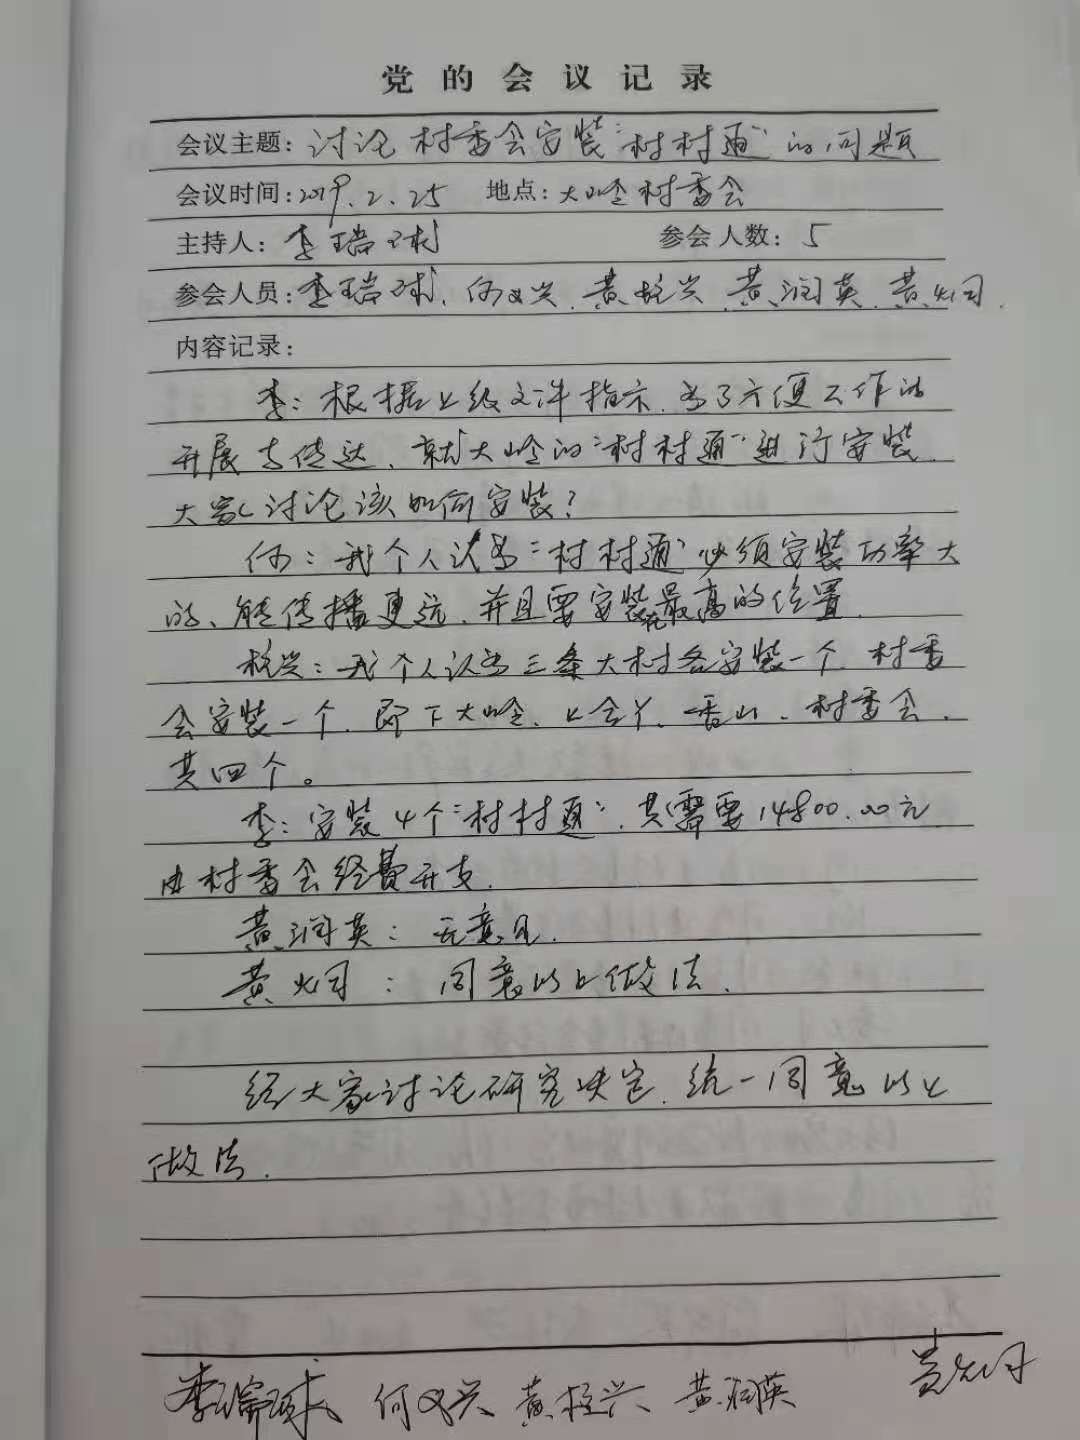 党的会议记录
会议主题：讨论村委会安装“村村通”的问题
会议时间：2019.2.25 地点：大岭村委会
主持人：李瑞球 参会人数：5
参会人员：李瑞球、何义兴、黄兴、黄润英、黄火
内容记录：
李：根据上级文件指示，为了方便工作的
开展与传达，就大岭的“村村通”进行安装，
大家讨论该如何安装？
何：我个人认为“村村通”必须安装功率大
的、能传播更远，并且要安装在最高的位置。
兴：我个人认为三条大村各安装一个，村委
会安装一个，即下大岭、上会丫、香山、村委会，
共四个。
李：安装4个“村村通”，共需要14800.00元
由村委会经费开支。
黄润英：无意见。
黄火：同意以上做法。
经大家讨论研究决定，统一同意以上
做法。
李瑞球 何义兴 黄兴 黄润英 黄